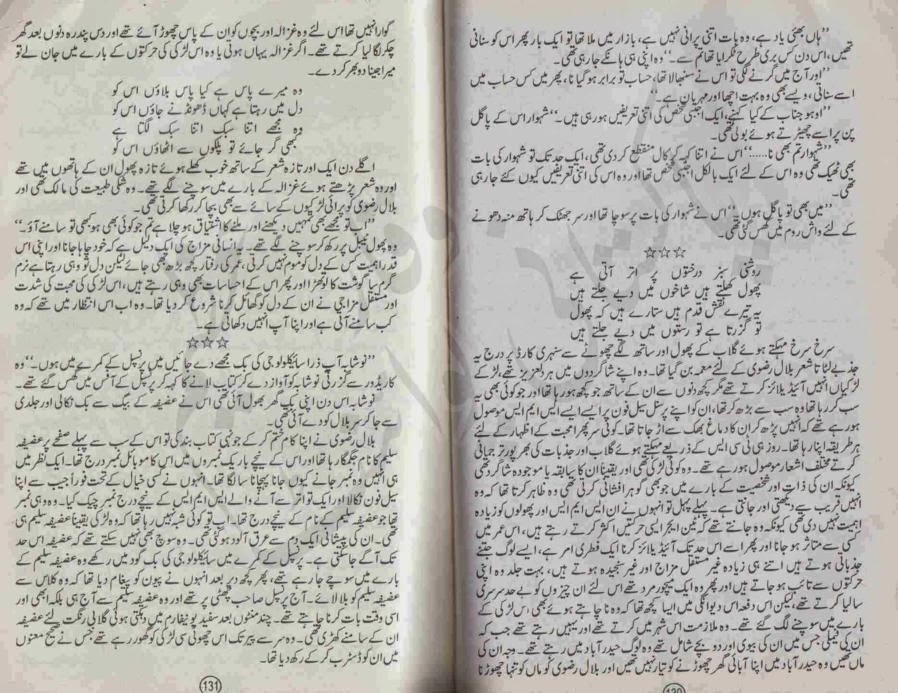 ”ہاں بھئی یاد ہے، وہ بات اتنی پرانی نہیں ہے، بازار میں ملا تھا تو ایک بار پھر اس کو سنانی
تھیں، اس دن کس بری طرح ٹکرایا تھا تم سے۔“ وہ اپنی ہی ہانکے جا رہی تھی۔
”اور آج میں گرنے لگی تو اس نے سنبھالا تھا، حساب تو برابر ہو گیا نا، پھر میں کس حساب میں
اسے سناتی، ویسے بھی وہ بہت اچھا اور مہربان ہے۔“
”اوہو جناب کے کیا کہنے، ایک اجنبی شخص کی اتنی تعریفیں ہو رہی ہیں۔“ شہوار اس کے پاگل
پن پر اسے چھیڑتے ہوئے بولی تھی۔
”شہوار تم بھی نا......“ اس نے اتنا کہہ کر کال منقطع کر دی تھی، ایک حد تک تو شہوار کی بات
بھی ٹھیک تھی وہ اس کے لئے ایک بالکل اجنبی شخص تھا اور وہ اس کی اتنی تعریفیں کیوں کئے جا رہی
تھی۔
”میں بھی تو پاگل ہوں۔“ اس نے شہوار کی بات پر سوچا تھا اور سر جھٹک کر ہاتھ منہ دھونے
کے لئے واش روم میں گھس گئی تھی۔
☆☆☆
روشنی سبز درختوں پر اتر آتی ہے
پھول کھلتے ہیں شاخوں میں دیے جلتے ہیں
یہ تیرے نقش قدم ہیں ستارے ہیں کہ پھول
تو گزرتا ہے تو رستوں میں دیے جلتے ہیں
سرخ سرخ مہکتے ہوئے گلاب کے پھول اور ساتھ لگے چھوٹے سے سنہری کارڈ پر درج یہ
جذبے لٹاتا شعر بلال رضوی کے لئے معمہ بن گیا تھا۔ وہ اپنے شاگردوں میں ہر دلعزیز تھے، لڑکے
لڑکیاں انہیں آئیڈیلائز کرتے تھے مگر کچھ دنوں سے ان کے ساتھ جو کچھ ہو رہا تھا اور جو کوئی بھی یہ
سب کر رہا تھا وہ سب سے بڑھ کر تھا، ان کو اپنے پرسنل سیل فون پر ایسے ایسے ایس ایم ایس موصول
ہو رہے تھے کہ انہیں پڑھ کر ان کا دماغ بھک سے اڑ جاتا تھا۔ کوئی سر پھرا محبت کے اظہار کے لئے
ہر طریقہ اپنا رہا تھا۔ روز ہی ٹی سی ایس کے ذریعے مہکتے ہوئے گلاب اور جذبات کی بھرپور ترجمانی
کرتے مختلف اشعار موصول ہو رہے تھے۔ وہ کوئی لڑکی تھی اور یقیناً ان کی سابقہ یا موجودہ شاگرد تھی
کیونکہ ان کی ذات اور شخصیت کے بارے میں جو بھی گوہر افشانی کرتی تھی وہ ظاہر کرتا تھا کہ وہ
انہیں قریب سے دیکھتی اور جانتی ہے۔ پہلے پہل تو انہوں نے ان ایس ایم ایس اور پھولوں کو زیادہ
اہمیت نہیں دی تھی کیونکہ وہ جانتے تھے کہ ٹین ایجر ایسی حرکتیں اکثر کرتے رہتے ہیں، اس عمر میں
کسی سے متاثر ہو جانا اور پھر اسے اس حد تک آئیڈیلائز کرنا ایک فطری امر ہے، ایسے لوگ جتنے
جذباتی ہوتے ہیں اتنے ہی زیادہ غیر مستقل مزاج اور غیر سنجیدہ ہوتے ہیں، بہت جلد وہ اپنی
حرکتوں سے تائب ہو جاتے ہیں اور پھر وہ ایک میچور مرد تھے اس لئے ان چیزوں کو بے حد سرسری
سا لیا کرتے تھے، لیکن اس دفعہ اس دیوانگی میں ایسا کچھ تھا کہ وہ نا چاہتے ہوئے بھی اس لڑکی کے
بارے میں سوچنے لگ گئے تھے۔ وہ ملازمت اس شہر میں کرتے تھے اور یہیں رہتے تھے جب کہ
ان کی فیملی جس میں ان کی بیوی اور دو بچے شامل تھے وہ لوگ حیدر آباد میں رہتے تھے۔ وجہ ان کی
ماں تھیں وہ حیدر آباد میں اپنا آبائی گھر چھوڑنے کو تیار نہیں تھیں اور بلال رضوی کو ماں کو تنہا چھوڑنا
130
گوارا نہیں تھا اس لئے وہ غزالہ اور بچوں کو ان کے پاس چھوڑ آئے تھے اور دس پندرہ دنوں بعد گھر
چکر لگا لیا کرتے تھے۔ اگر غزالہ یہاں ہوتی یا وہ اس لڑکی کی حرکتوں کے بارے میں جان لے تو
میرا جینا دوبھر کر دے۔
وہ میرے پاس ہے کیا پاس بلاؤں اس کو
دل میں رہتا ہے کہاں ڈھونڈنے جاؤں اس کو
وہ مجھے اتنا سبک اتنا سبک لگتا ہے
کبھی گر جائے تو پلکوں سے اٹھاؤں اس کو
اگلے دن ایک اور تازہ شعر کے ساتھ خوب کھلے ہوئے تازہ پھول ان کے ہاتھوں میں تھے
اور وہ شعر پڑھتے ہوئے غزالہ کے بارے میں سوچنے لگے تھے۔ وہ شکی طبیعت کی مالک تھی اور
بلال رضوی کو پرائی لڑکیوں کے سائے سے بھی بچا کر رکھا کرتی تھی۔
”اب تو مجھے بھی تمہیں دیکھنے اور ملنے کا اشتیاق ہو چلا ہے تم جو کوئی بھی ہو کبھی تو سامنے آؤ۔“
وہ پھول ٹیبل پر رکھ کر سوچنے لگے تھے۔ یہ انسانی مزاج کی ایک دلیل ہے کہ خود چاہا جانا اور اپنی اس
قدر اہمیت کس کے دل کو موم نہیں کرتی، عمر کی رفتار کچھ بڑھ بھی جائے لیکن دل تو وہی رہتا ہے نرم
گرم سا گوشت کا لوتھڑا اور پھر اس کے احساسات بھی وہی رہتے ہیں، اس لڑکی کی محبت کی شدت
اور مستقل مزاجی نے ان کے دل کو گھائل کرنا شروع کر دیا تھا۔ وہ اب اس انتظار میں تھے کہ وہ
کب سامنے آتی ہے اور اپنا آپ انہیں دکھاتی ہے۔
☆☆☆
”نوشابہ آپ ذرا سائیکلوجی کی بک مجھے دے جائیں میں پرنسپل کے کمرے میں ہوں۔“ وہ
کاریڈور سے گزرتی نوشابہ کو آواز دے کر کتاب لانے کا کہہ کر پرنسپل کے آفس میں گھس گئے تھے۔
نوشابہ اس دن اپنی بک گھر بھول آئی تھی اس نے عفیفہ کے بیگ سے بک نکالی اور جلدی
سے جا کر سر بلال کو دے آئی تھی۔
بلال رضوی نے اپنا کام ختم کر کے جونہی کتاب بند کی تو اس کے سب سے پہلے صفحے پر عفیفہ
سلیم کا نام جگمگا رہا تھا اور اس کے نیچے باریک نمبروں میں اس کا موبائل نمبر درج تھا۔ ایک نظر میں
ہی انہیں وہ نمبر جانے کیوں جانا پہچانا سا لگا تھا۔ انہوں نے کسی خیال کے تحت فوراً جیب سے اپنا
سیل فون نکالا اور ایک تواتر سے آنے والے ایس ایم ایس کے نیچے درج نمبر چیک کیا۔ وہ وہی نمبر
تھا جو عفیفہ سلیم کے نام کے نیچے درج تھا۔ اب تو کوئی شبہ نہیں رہا تھا کہ وہ لڑکی یقیناً عفیفہ سلیم ہی
تھی۔ ان کی پیشانی ایک دم سے عرق آلود ہو گئی تھی۔ وہ سوچ بھی نہیں سکتے تھے کہ عفیفہ اس حد
تک آگے جا سکتی ہے۔ پرنسپل کے کمرے میں سائیکلوجی کی بک گود میں رکھے وہ عفیفہ سلیم کے
بارے میں سوچے جا رہے تھے، پھر کچھ دیر بعد انہوں نے پیون کو پیغام دیا تھا کہ وہ کلاس سے
عفیفہ سلیم کو بلا لائے۔ آج پرنسپل صاحب چھٹی پر تھے اور وہ عفیفہ سلیم سے آج ہی بلکہ ابھی اور
اسی وقت بات کرنا چاہتے تھے۔ چند منٹوں بعد سفید یونیفارم میں دمکتی ہوئی گلابی رنگت لئے عفیفہ
ان کے سامنے کھڑی تھی۔ وہ سر سے پیر تک اس چھوٹی سی لڑکی کو گھور رہے تھے جس نے صحیح معنوں
میں ان کو ڈسٹرب کر کے رکھ دیا تھا۔
131